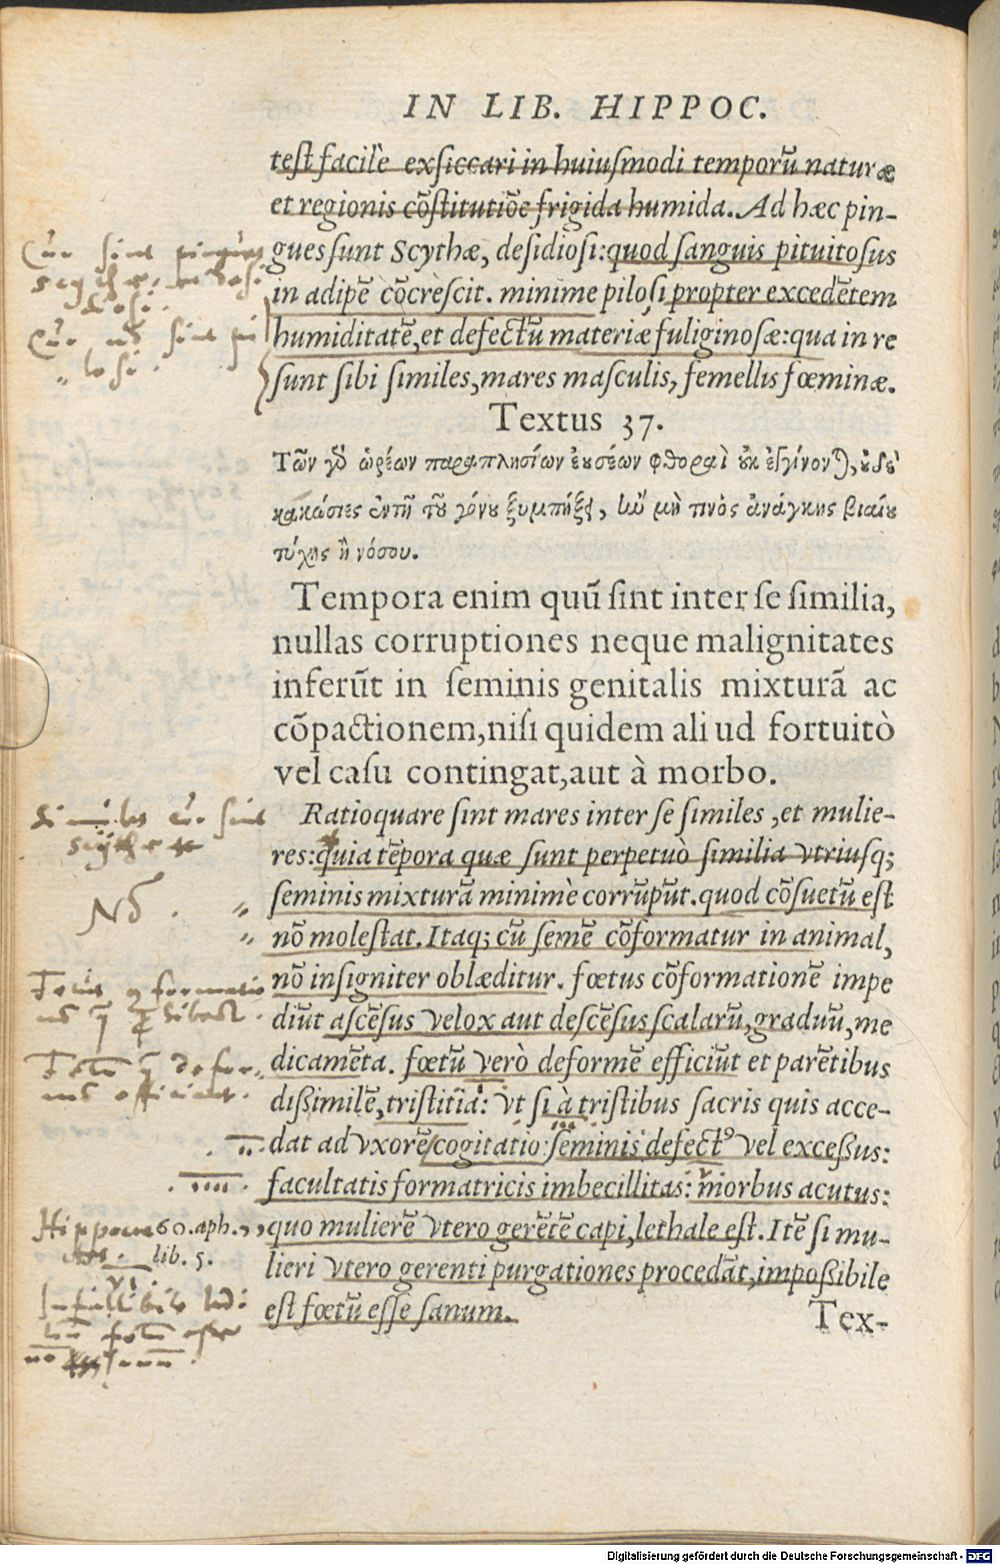 IN LIB. HIPPOC.
test facilè exsiccari in huiusmodi temporũ naturæ
et regionis cõstitutiõe frigida humida. Ad hæc pin-
gues sunt Scythæ, desidiosi: quod sanguis pituitosus
in adipẽ cõcrescit. minime pilosi propter excedẽtem
humiditatẽ, et defectũ materiæ fuliginosæ: qua in re
sunt sibi similes, mares masculis, femellis fœminæ.
Cur sint pingues
scythæ, et desi
diosi.
Cur nõ sint pi
losi.
Textus 37.
Τῶν γὸ ὡρέων παραπλησίων ἐουσέων φθοραὶ οὐκ ἐγγίνονται, οὐδὲ
κακώσιες ἐν τῇ τοῦ γόνου ξυμπήξει, ἢν μὴ τινὸς ἀνάγκης βιαίου
τύχης ἢ νόσου.
Tempora enim quũ sint inter se similia,
nullas corruptiones neque malignitates
inferũt in seminis genitalis mixturã ac
cõpactionem, nisi quidem aliud fortuitò
vel casu contingat, aut à morbo.
Ratio quare sint mares inter se similes, et mulie-
res: quia tẽpora quæ sunt perpetuò similia vtriusq;
seminis mixturã minimè corrũpũt. quod cõsuetũ est
nõ molestat. Itaq; cũ semẽ cõformatur in animal,
nõ insigniter oblæditur. fœtus cõformationẽ impe
diũt ascẽsus velox aut descẽsus scalarũ, graduũ, me
dicamẽta. fœtũ verò deformẽ efficiũt et parẽtibus
dissimilẽ, tristitia: vt si à tristibus sacris quis acce-
dat ad vxorẽ cogitatio: seminis defectꝰ vel excessus:
facultatis formatricis imbecillitas: morbus acutus:
quo mulierẽ vtero gerẽtẽ capi, lethale est. Itẽ si mu-
lieri vtero gerenti purgationes procedãt, impossibile
est fœtũ esse sanum.
Similes cur sint
scythæ
Nõ.
Hippocr 60. aph.
lib. 5.
Tex-
Digitalisierung gefördert durch die Deutsche Forschungsgemeinschaft - DFG